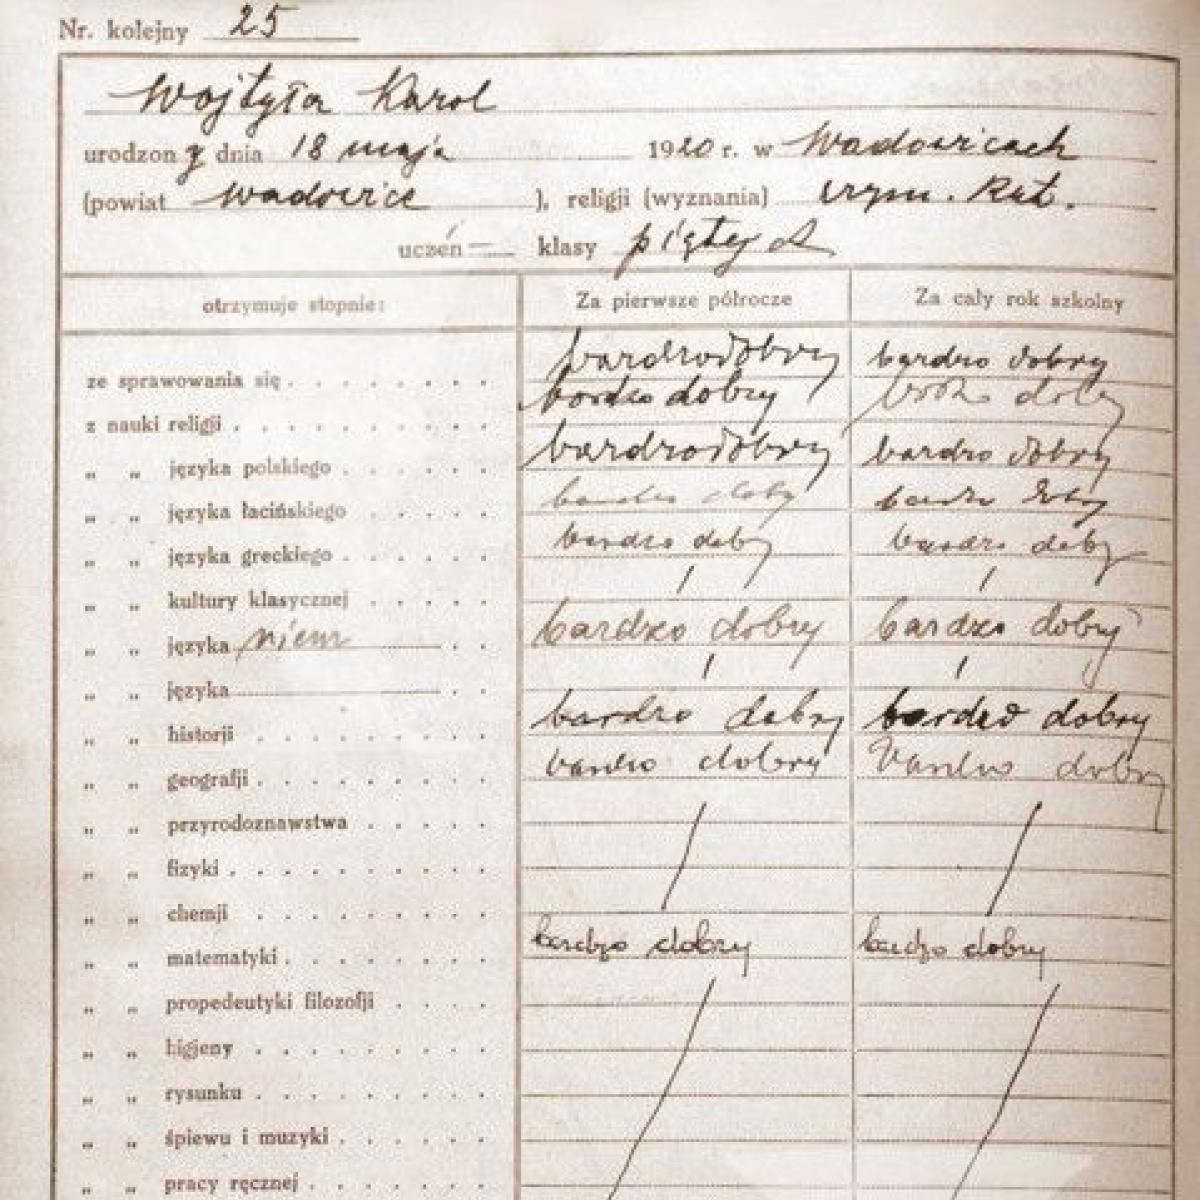 Nr. kolejny 25
Wojtyła Karol
urodzony dnia 18 maja 1920 r. w Wadowicach
(powiat Wadowice ), religji (wyznania) rzym. kat.
uczeń klasy piątej A
otrzymuje stopnie: Za pierwsze półrocze Za cały rok szkolny
ze sprawowania się bardzo dobry bardzo dobry
z nauki religji bardzo dobry bardzo dobry
„ „ języka polskiego bardzo dobry bardzo dobry
„ „ języka łacińskiego bardzo dobry bardzo dobry
„ „ języka greckiego bardzo dobry bardzo dobry
„ „ kultury klasycznej / /
„ „ języka niem bardzo dobry bardzo dobry
„ „ języka / /
„ „ historji bardzo dobry bardzo dobry
„ „ geografji bardzo dobry bardzo dobry
„ „ przyrodoznawstwa
„ „ fizyki
„ „ chemji
„ „ matematyki bardzo dobry bardzo dobry
„ „ propedeutyki filozofji
„ „ higjeny
„ „ rysunku
„ „ śpiewu i muzyki
„ „ pracy ręcznej